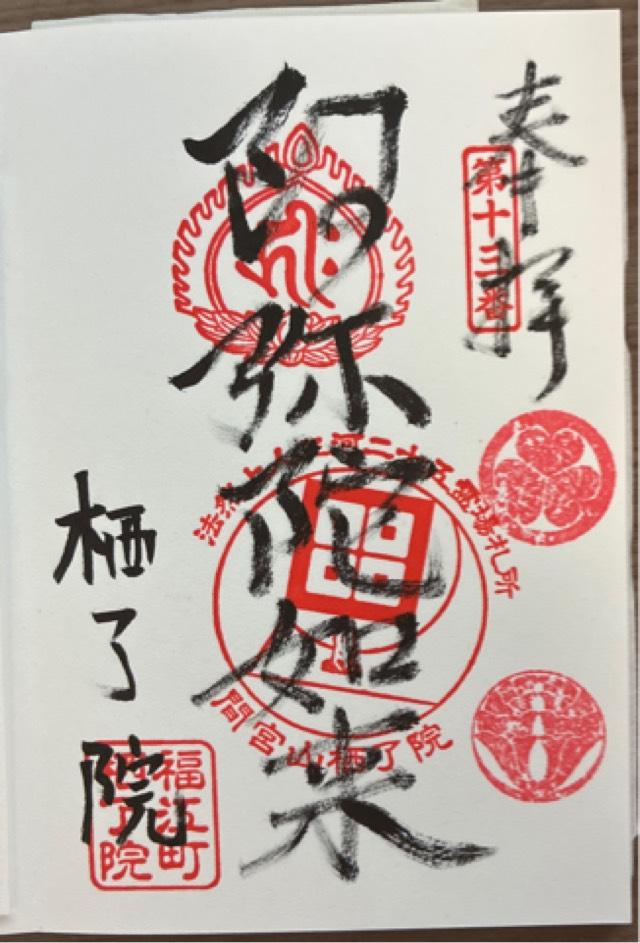 奉拝
第十三番
阿弥陀如来
法然上人三河二十五霊場札所
間宮山栖了院
栖了院
福江町
栖了院